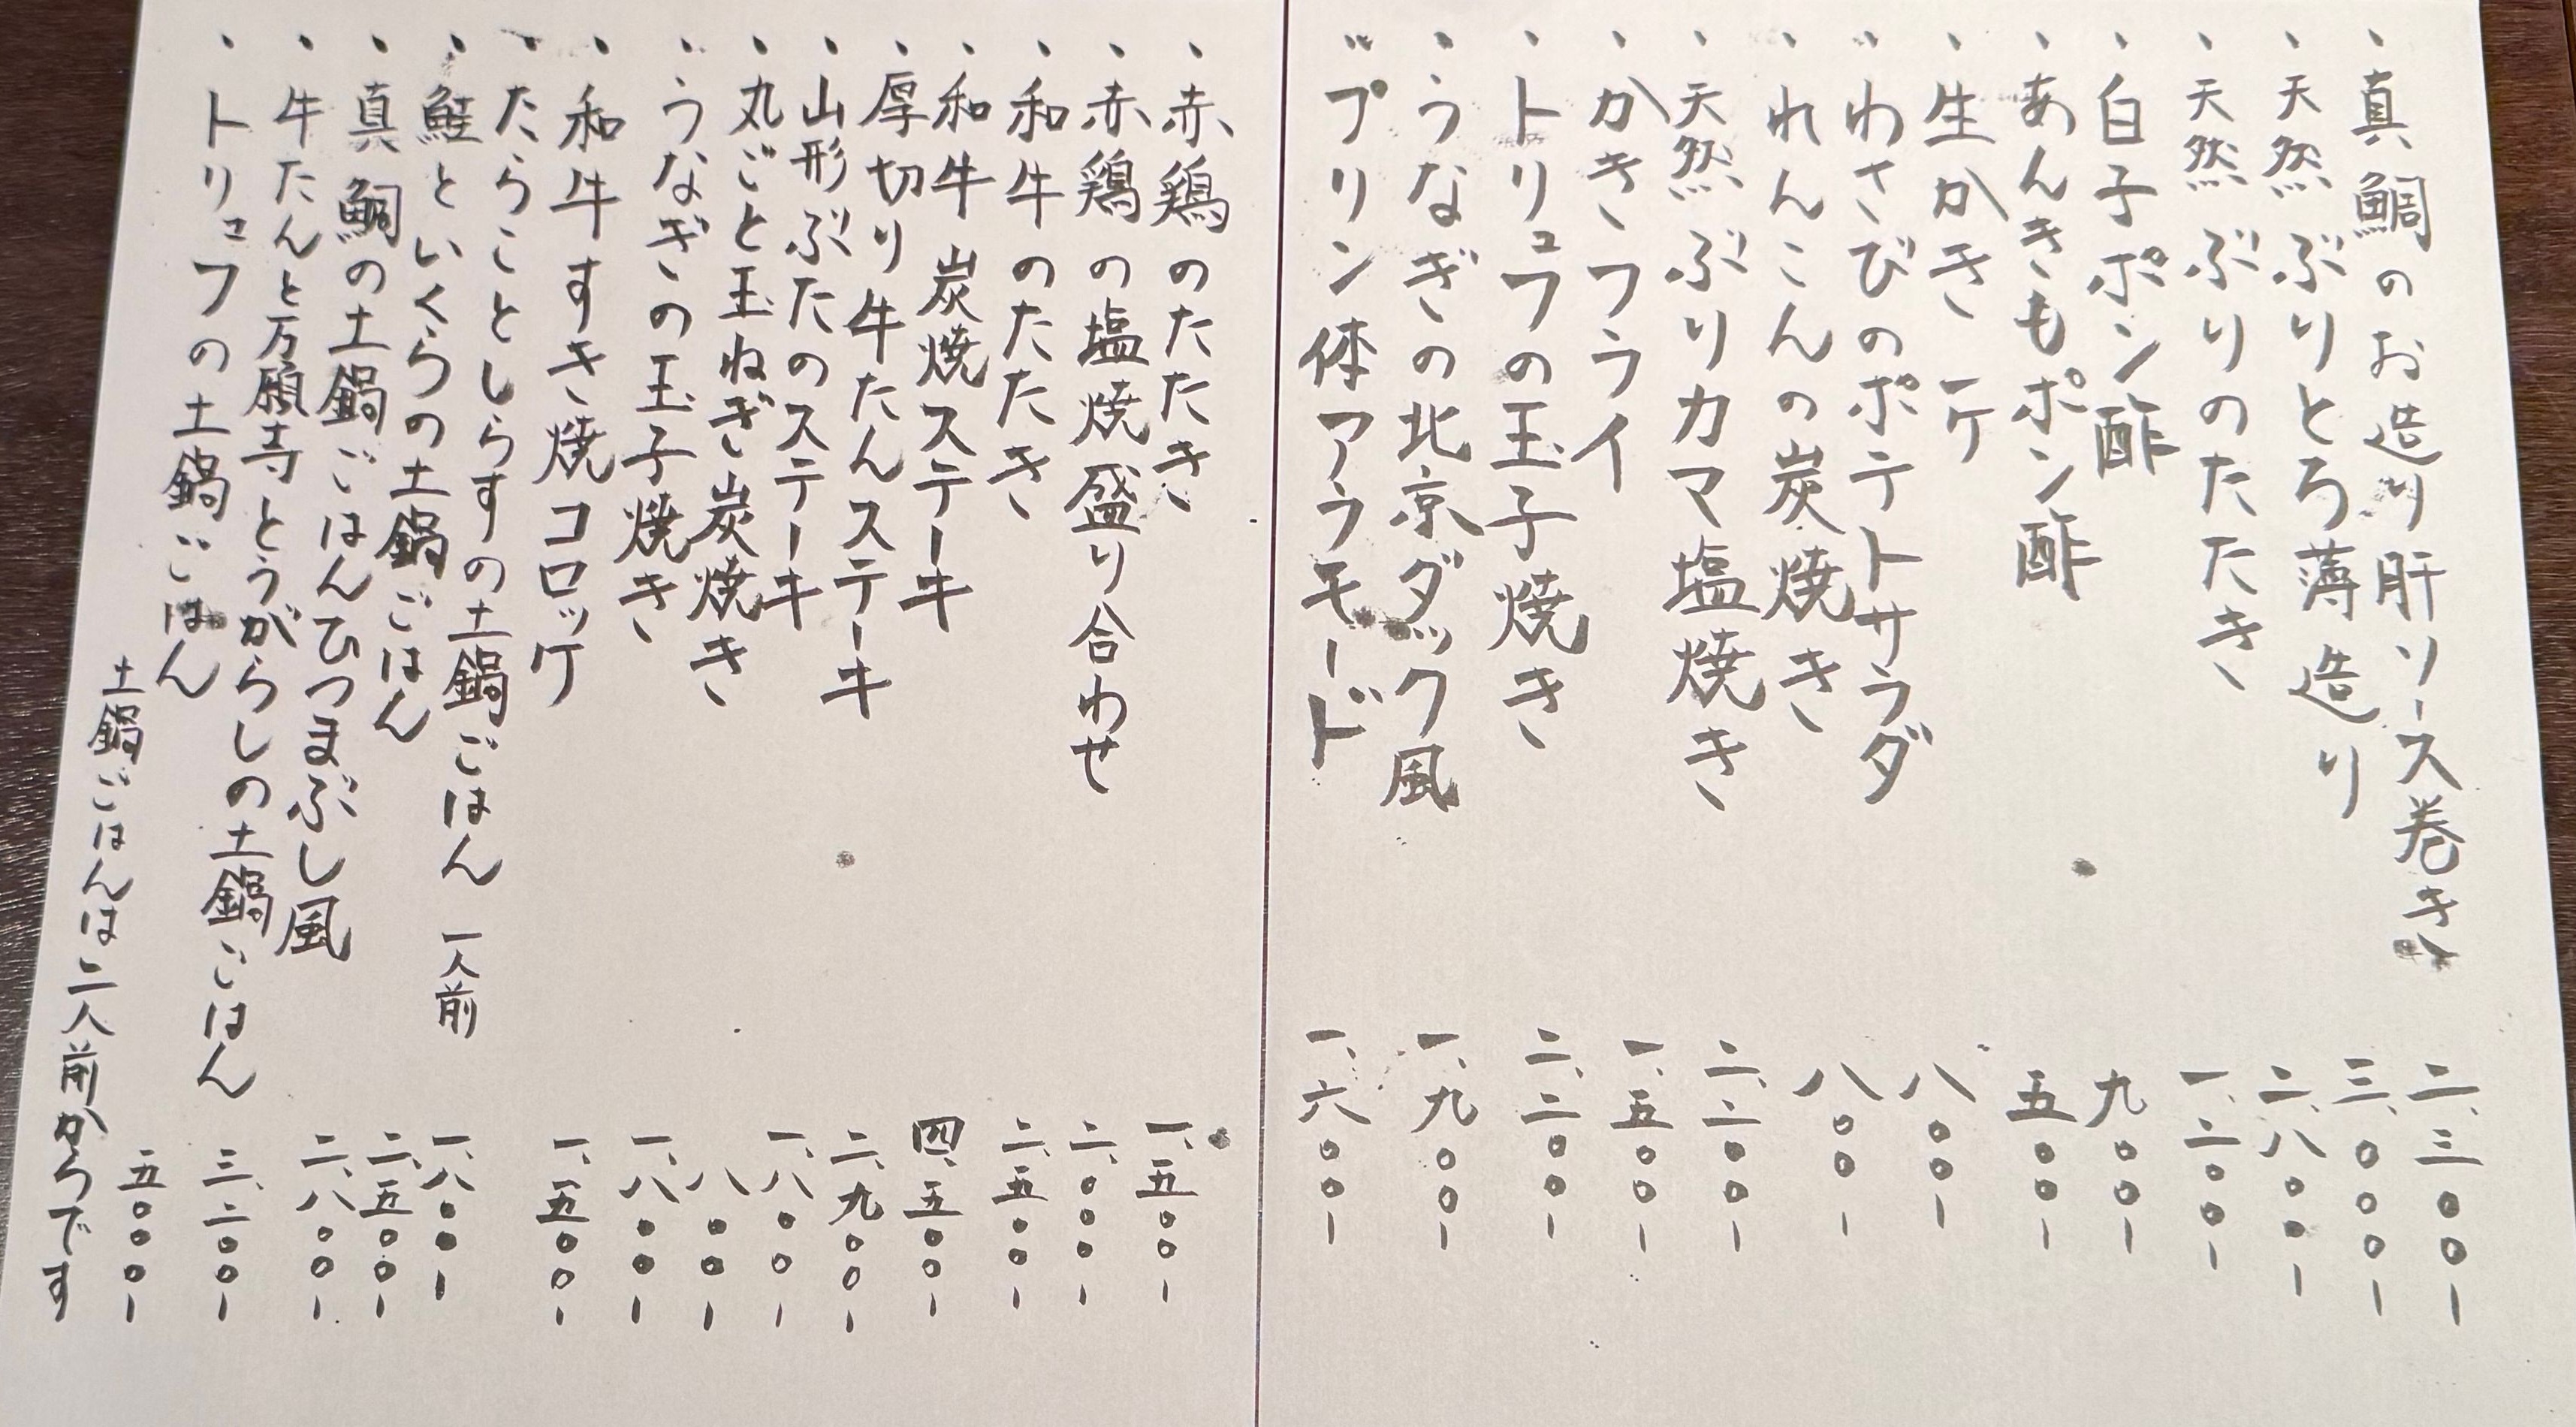 ・真鯛のお造り肝ソース巻き 二、三〇〇-
・天然ぶりとろ薄造り 三、〇〇〇-
・天然ぶりのたたき 二、八〇〇-
・白子ポン酢 一、二〇〇-
・あんきもポン酢 九〇〇-
・生かき 一ケ 五〇〇-
・わさびのポテトサラダ 八〇〇-
・れんこんの炭焼き 八〇〇-
・天然ぶりカマ塩焼き 二、二〇〇-
・かきフライ 一、五〇〇-
・トリュフの玉子焼き 二、二〇〇-
・うなぎの北京ダック風 一、九〇〇-
・プリン体アラモード 一、六〇〇-
・赤鶏のたたき 一、五〇〇-
・赤鶏の塩焼盛り合わせ 二、〇〇〇-
・和牛のたたき 二、五〇〇-
・和牛炭焼ステーキ 四、五〇〇-
・厚切り牛たんステーキ 二、九〇〇-
・山形ぶたのステーキ 一、八〇〇-
・丸ごと玉ねぎ炭焼き 八〇〇-
・うなぎの玉子焼き 一、八〇〇-
・和牛すき焼コロッケ 一、五〇〇-
・たらことしらすの土鍋ごはん 一人前 一、八〇〇-
・鮭といくらの土鍋ごはん 二、五〇〇-
・真鯛の土鍋ごはんひつまぶし風 二、八〇〇-
・牛たんと万願寺とうがらしの土鍋ごはん 三、二〇〇-
・トリュフの土鍋ごはん 五〇〇〇-
土鍋ごはんは二人前からです